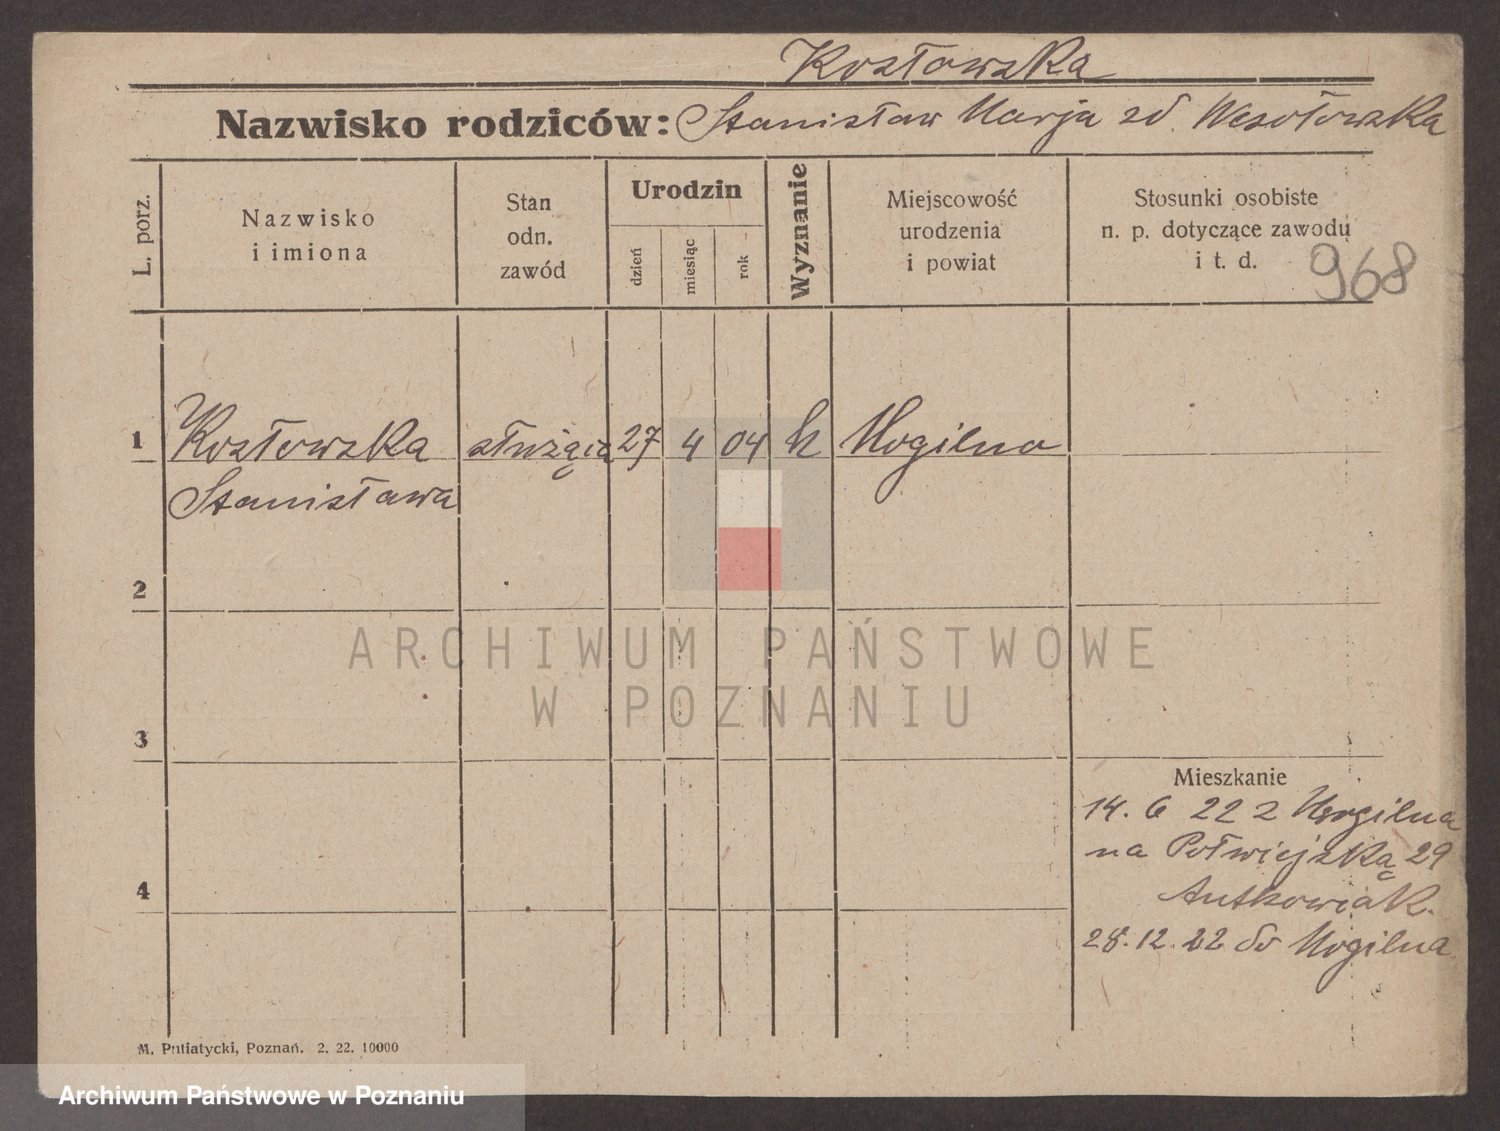 Kozłowska
Nazwisko rodziców: Stanisław Marja zd Wesołowska
L. porz.
Nazwisko
i imiona
Stan
odn.
zawód
Urodzin
dzień
miesiąc
rok
Wyznanie
Miejscowość
urodzenia
i powiat
Stosunki osobiste
n. p. dotyczące zawodu
i t. d.
968
1 Kozłowska służąca 27 4 04 k Mogilno
Stanisława
2
3
4
ARCHIWUM PAŃSTWOWE
W POZNANIU
Mieszkanie
14. 6 22 z Mogilna
na Półwiejską 29
Antkowiak.
28.12.22 do Mogilna
M. Putiatycki, Poznań. 2. 22. 10000
Archiwum Państwowe w Poznaniu